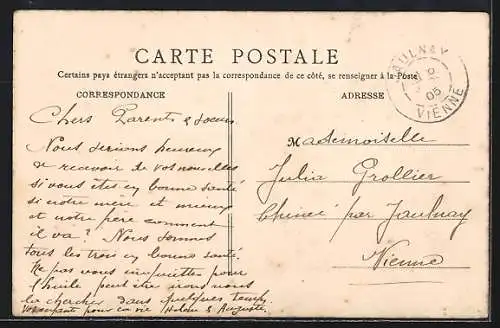 CARTE POSTALE
Certains pays étrangers n'acceptant pas la correspondance de ce côté, se renseigner à la Poste
CORRESPONDANCE
Chers Parents & Soeur
Nous serions heureux
de recevoir de vos nouvelles
si vous êtes en bonne santé
si notre mère et mieux
et notre père comment
il va? Nous sommes
tous les trois en bonne santé.
Ne pas vous inquietter pour
l'huile peut être irons nous
la chercher dans quelques temps
pour la vie & Auguste
ADRESSE
JAULNAY
05
VIENNE
Mademoiselle
Julia Grollier
par Jaulnay
Vienne